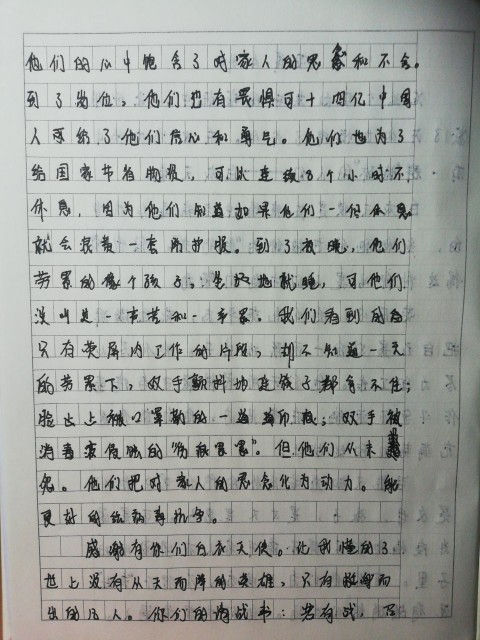 他们的心中饱含了对家人的思念和不舍。
到了岗位,他们也有畏惧可十四亿中国
人民给了他们信心和勇气。他们也为了
给国家节省物投,可以连续8个小时不
休息,因为他们知道如果他们一但休息
就会浪费一套防护服。到了夜晚,他们
劳累的像个孩子。坐在地就睡,可他们
没叫过一声苦和一声累。我们看到的也
只有荧屏内工作的片段,却不知道一天
的劳累下,双手颤抖地连筷子都拿不住;
脸上上被口罩勒的一道道印痕;双手被
消毒液侵蚀的“伤痕累累”。但他们从未
怨。他们把对家人的思念化为动力。能
更好的给病毒抗争。
感谢有你们白衣天使。让我懂的了
世上没有从天而降的英雄,只有挺身而
出的凡人。你们的请战书:若有战,召